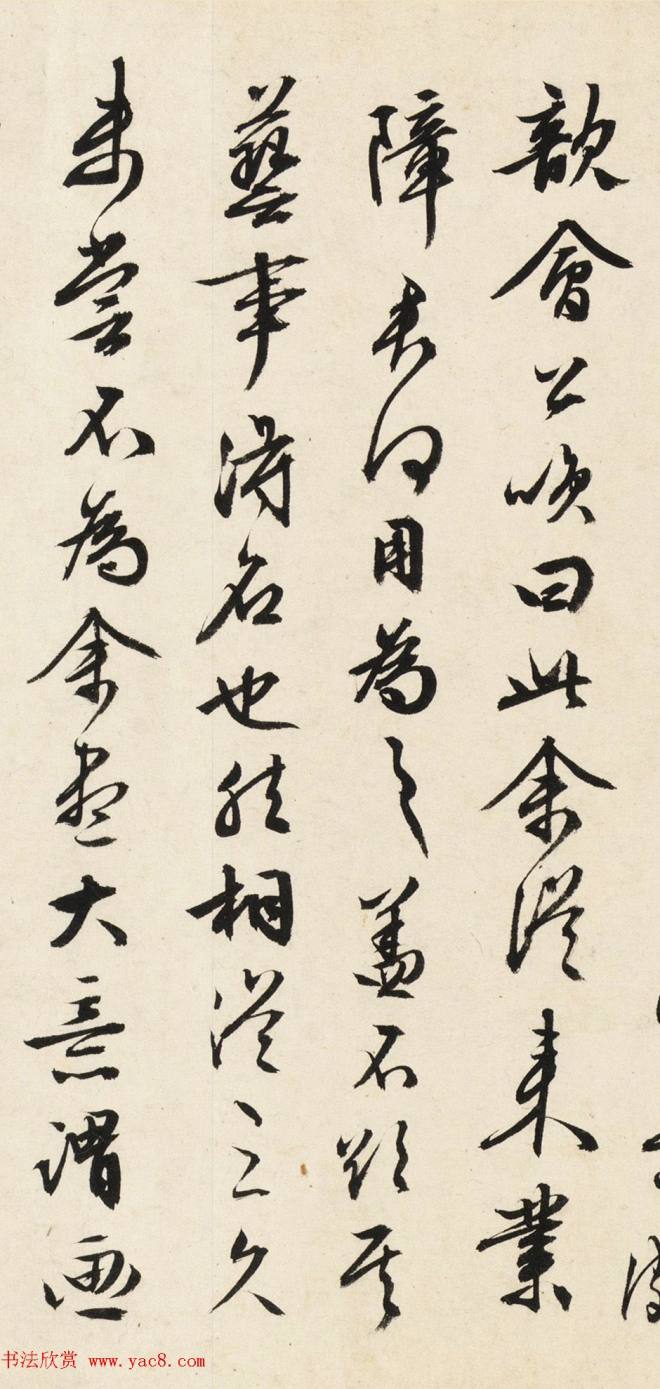 歆會公咲曰此余從來業
障君何用為之蓋不欲其
藝事得名也然相從之久
未嘗不為余盡大意謂畫
书法欣赏 www.yac8.com